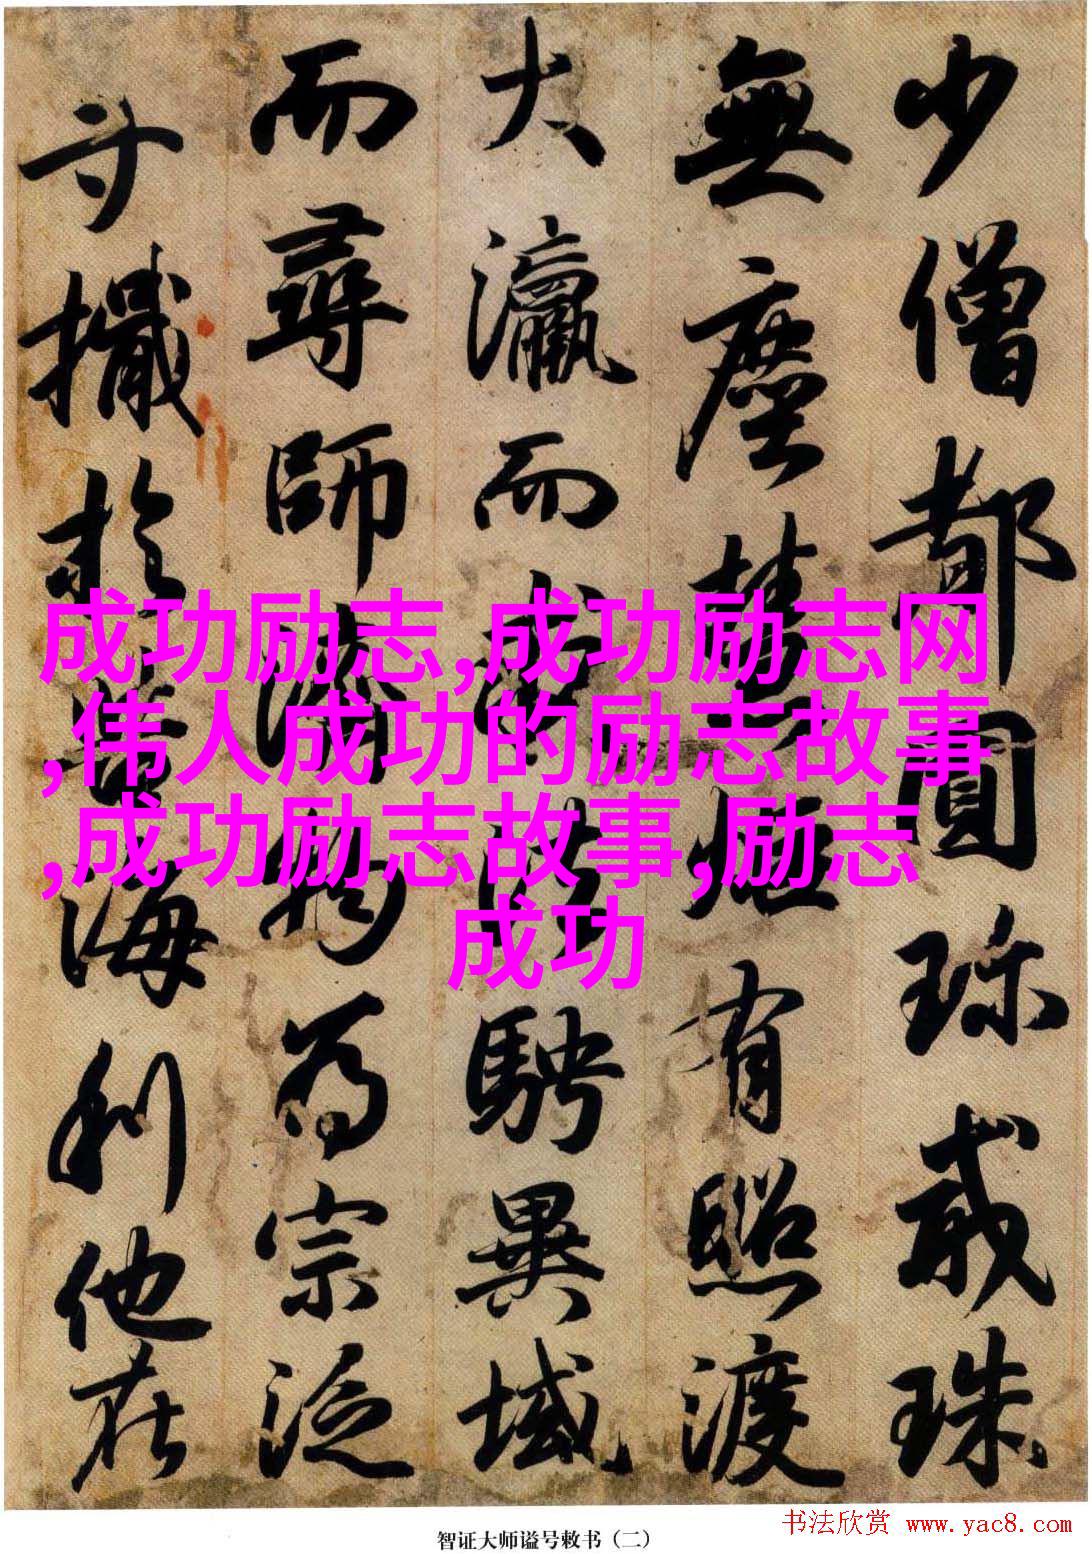 少僧都圓珍戒珠
無塵慧炬有照渡
大瀛而求法騁異域
而尋師濟物為宗泛
寸檝於苦海利他在
成功励志,成功励志网
,伟人成功的励志故事
,成功励志故事,励志
成功
智证大师谥号敕书（二）
书法欣赏 www.yac8.com